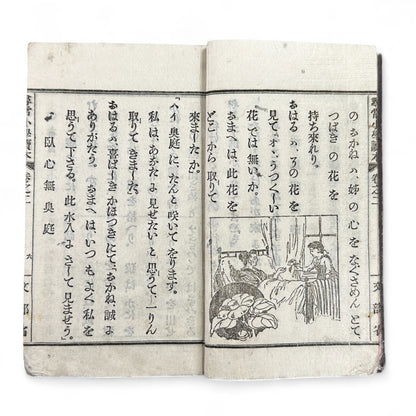 尋常小學讀本 卷之二 文部省
のおかねハ、姉の心をなぐさめんとて
つばきの花を
持ち來れり。
おはる
見て うつくしい
花では無いか。
おまへは、此花を
どこから取りて
來ましたか。
「ハイ奥庭に、たんと咲いてをります。
私は、あなたに見せたいと思うて、一りん
取りてきました。」
おはるハ、喜ばしきかほつきにて、「おかね、誠に
ありがたう。おまへはいつもよく私を
思うて下さる。此水入にさして見ませう。」
臥心無奥庭
尋常小學讀本 卷之二 六 文部省